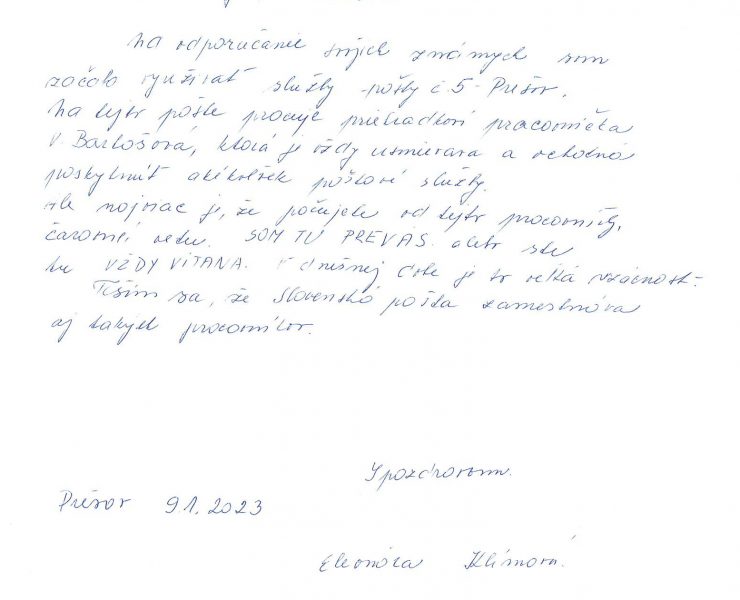 Na odporúčanie svojich známych som
začala využívať služby pošty č. 5 - Prešov.
Na tejto pošte pracuje priehradková pracovníčka
V. Bartošová, ktorá je vždy usmievavá a ochotná
poskytnúť akékoľvek poštové služby.
Ale najviac je, že počujete od tejto pracovníčky,
čarovnú vetu. SOM TU PRE VÁS. alebo ste
tu VŽDY VÍTANÁ. V dnešnej dobe je to veľká vzácnosť.
Teším sa, že Slovenská pošta zamestnáva
aj takých pracovníkov.
S pozdravom.
Prešov 9.1.2023
Eleonóra Klímová.